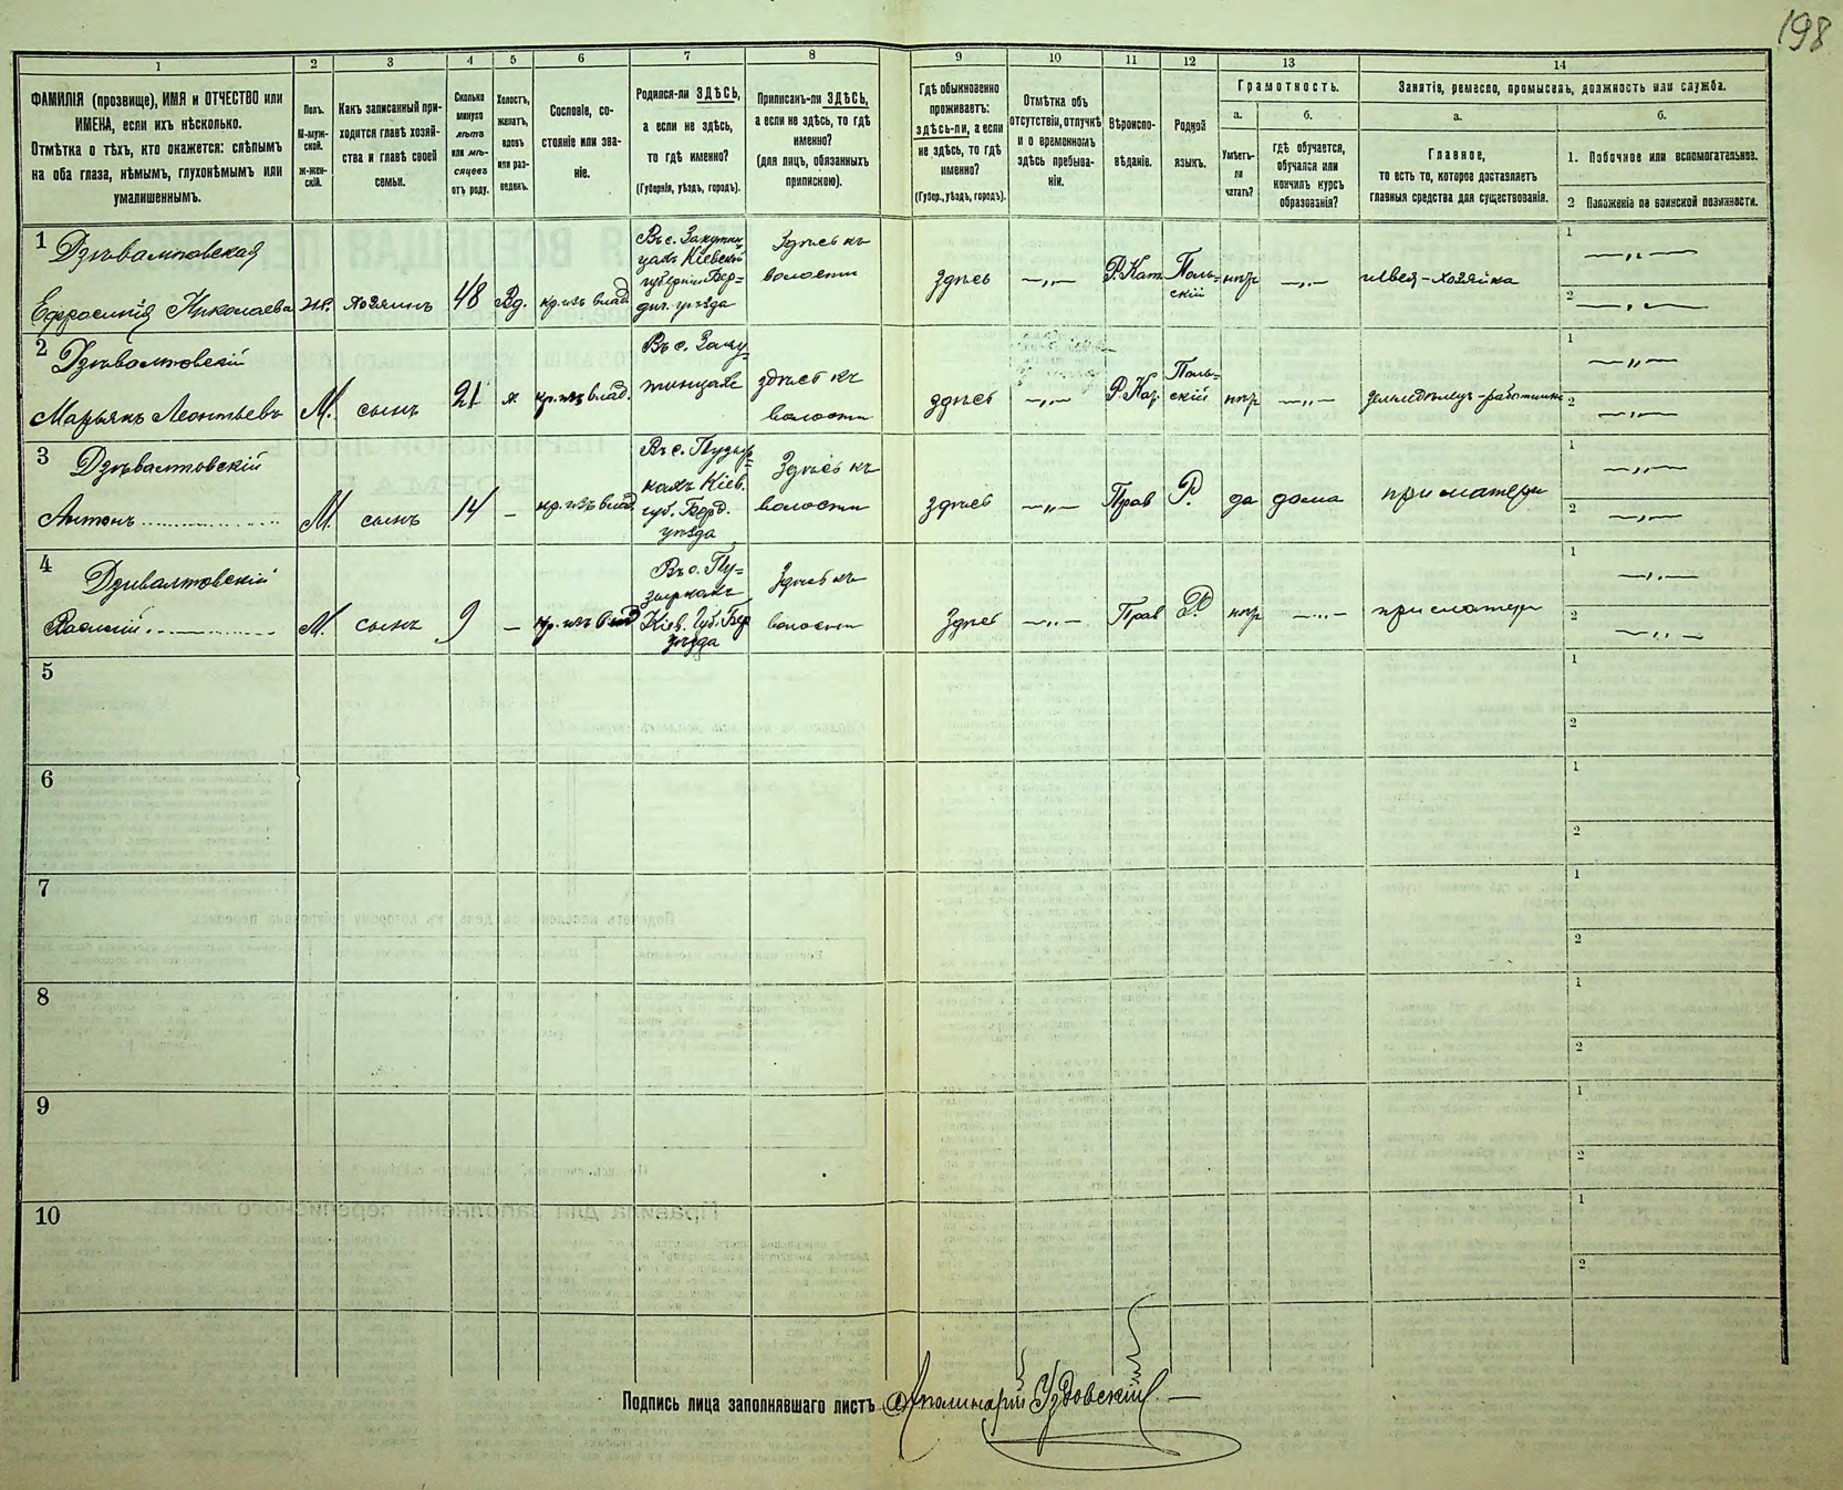 198
1 2 3 4 5 6 7 8 9 10 11 12 13 14
ФАМИЛІЯ (прозвище), ИМЯ и ОТЧЕСТВО или
ИМЕНА, если ихъ нѣсколько.
Отмѣтка о тѣхъ, кто окажется: слѣпымъ
на оба глаза, нѣмымъ, глухонѣмымъ или
умалишеннымъ.
Полъ.
М-муж-
ской.
ж-жен-
скій.
Какъ записанный при-
ходится главѣ хозяй-
ства и главѣ своей
семьи.
Сколько
минуло
лѣтъ
или мѣ-
сяцевъ
отъ роду.
Холостъ,
женатъ,
вдовъ
или раз-
веденъ.
Сословіе, со-
стояніе или зва-
ніе.
Родился-ли ЗДѢСЬ,
а если не здѣсь,
то гдѣ именно?
(Губернія, уѣздъ, городъ).
Приписанъ-ли ЗДѢСЬ,
а если не здѣсь, то гдѣ
именно?
(для лицъ, обязанныхъ
припискою).
Гдѣ обыкновенно
проживаетъ:
здѣсь-ли, а если
не здѣсь, то гдѣ
именно?
(Губер., уѣздъ, городъ).
Отмѣтка объ
отсутствіи, отлучкѣ
и о временномъ
здѣсь пребыва-
ніи.
Вѣроиспо-
вѣданіе.
Родной
языкъ.
Грамотность.
а.
Умѣетъ-
ли
читать?
б.
гдѣ обучается,
обучался или
кончилъ курсъ
образованія?
Занятіе, ремесло, промыселъ, должность или служба.
а.
Главное,
то есть то, которое доставляетъ
главныя средства для существованія.
б.
1. Побочное или вспомогательное.
2 Положеніе по воинской повинности.
1 Дзѣвалтовская
Ефросинія Николаева
жг.
хозяинъ
48
Вд.
кр. изъ влад.
Въ с. Закутин
цахъ Кіевской
губерніи Бер=
дич. уѣзда
Здѣсь къ
волости
здѣсь
—„—
Р. Кат.
Поль=
скій
нѣтъ
—„—
швея-хозяйка
1 —„—
2 —„—
2 Дзѣвалтовскій
Марьянъ Леонтьевъ
М.
сынъ
21
х
кр. изъ влад.
Въ с. Заку
тинцахъ
здѣсь къ
волости
здѣсь
—„—
Р. Кат.
Поль=
скій
нѣтъ
—„—
земледѣлецъ-работникъ
1 —„—
2 —„—
3 Дзѣвалтовскій
Антонъ
М.
сынъ
14
—
кр. изъ влад.
Въ с. Пузыр=
кахъ Кіев.
губ. Берд.
уѣзда
Здѣсь къ
волости
здѣсь
—„—
Прав
Р.
да
дома
при матери
1 —„—
2 —„—
4 Дзивалтовскій
Василій
М.
сынъ
9
—
кр. изъ влад
Въ с. Пу=
зыркахъ
Кіев. губ. Бер
уѣзда
Здѣсь къ
волости
Здѣсь
—„—
Прав
Р.
нѣтъ
—„—
при матери
1 —„—
2 —„—
5 1
2
6 1
2
7 1
2
8 1
2
9 1
2
10 1
2
Подпись лица заполнявшаго листъ Аполинарій Уздовскій